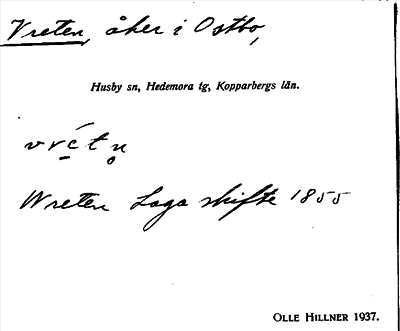 Vreten, åker i Ostbo,
Husby sn, Hedemora tg, Kopparbergs län.
vré̱tn̥
Wreten Laga skifte 1855
OLLE HILLNER 1937.